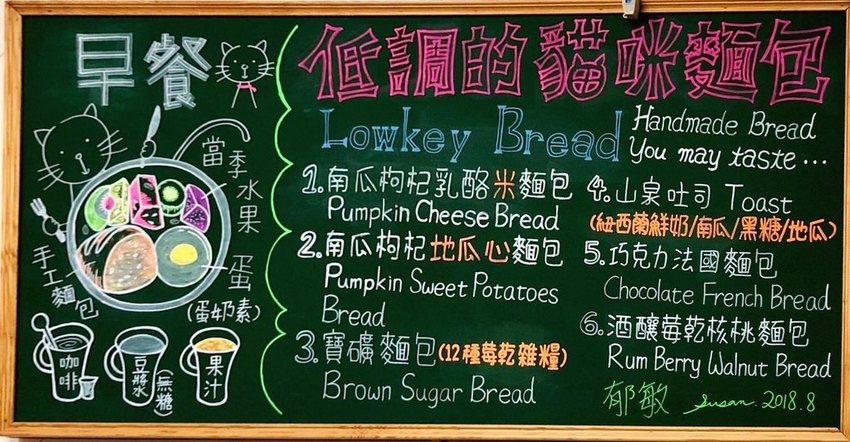 早餐
當季水果
蛋
(蛋奶素)
手工麵包
咖啡
豆漿水
(無糖)
果汁
低調的貓咪麵包
Lowkey Bread
Handmade Bread
You may taste...
1.南瓜枸杞乳酪米麵包
Pumpkin Cheese Bread
2.南瓜枸杞地瓜心麵包
Pumpkin Sweet Potatoes
Bread
3.寶礦麵包(12種莓乾雜糧)
Brown Sugar Bread
4.山泉吐司 Toast
(紐西蘭鮮奶/南瓜/黑糖/地瓜)
5.巧克力法國麵包
Chocolate French Bread
6.酒釀莓乾核桃麵包
Rum Berry Walnut Bread
郁敏 Susan. 2018.8